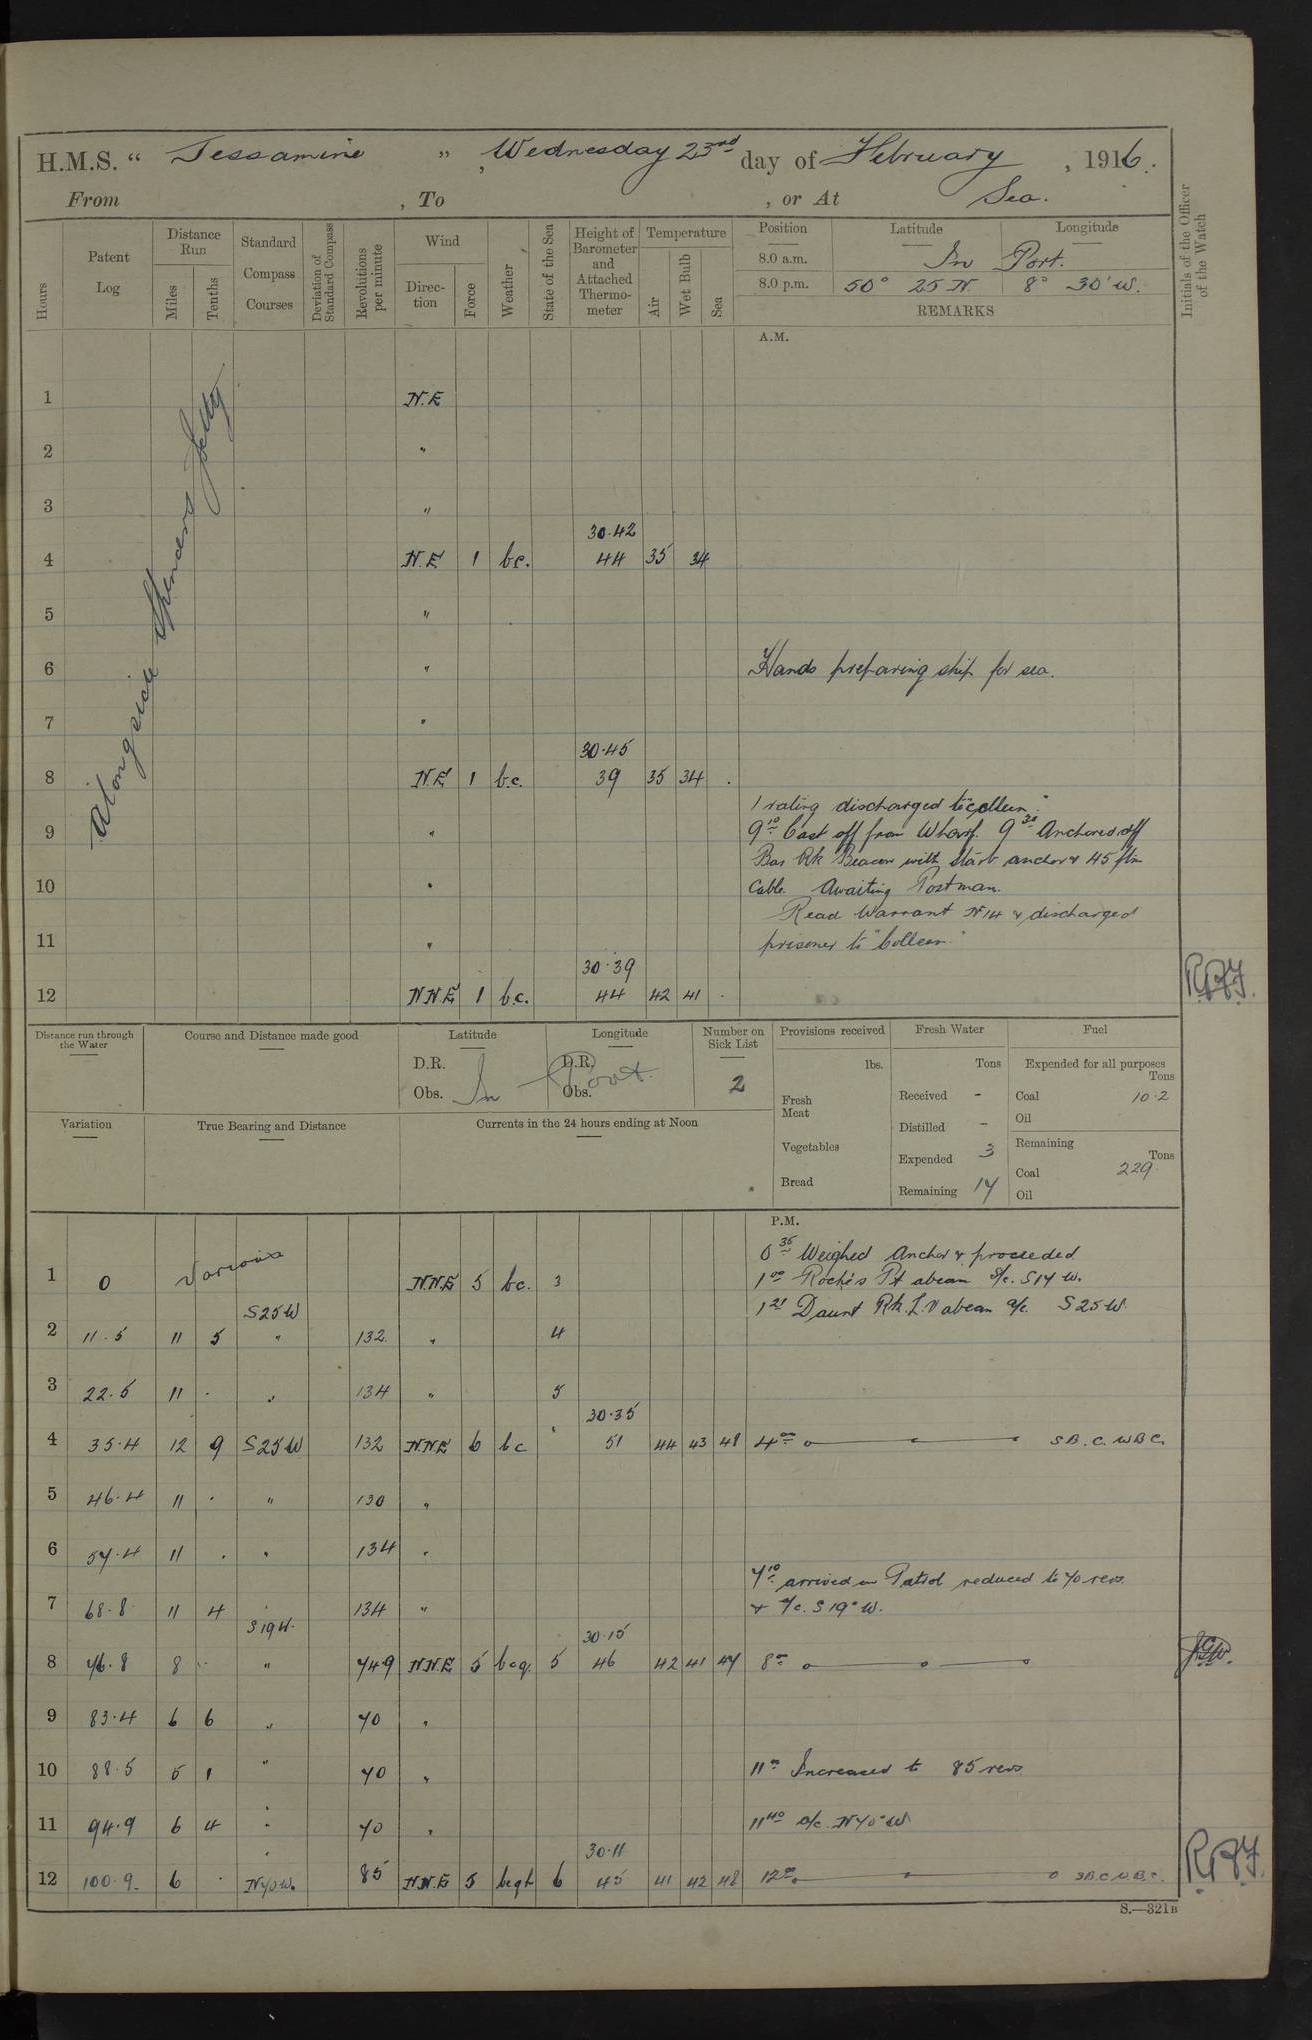 H.M.S. “ Jessamine ”, Wednesday 23rd day of February, 1916.
From , To , or At Sea.
Hours
Patent Log
Distance Run
Miles
Tenths
Standard Compass Courses
Deviation of Standard Compass
Revolutions per minute
Wind
Direction
Force
Weather
State of the Sea
Height of Barometer and Attached Thermometer
Temperature
Air
Wet Bulb
Sea
Position Latitude Longitude
8.0 a.m. In Port.
8.0 p.m. 50° 25 N 8° 30' W.
REMARKS
Initials of the Officer of the Watch
A.M.
Alongside Spencers Jetty
1 N.E
2 "
3 "
30.42
4 N.E 1 bc. 44 35 34
5 "
6 " Hands preparing ship for sea.
7 "
30.45
8 N.E 1 b.c. 39 35 34
1 rating discharged to "Colleen".
9 " 9 10 Cast off from Wharf. 9 30 Anchored off
Bar Rk Beacon with Starb anchor & 45 fm
10 " Cable. Awaiting Postman.
Read Warrant No 14 & discharged
11 " prisoner to "Colleen."
30.39
12 N.N.E 1 b.c. 44 42 41
Distance run through the Water
Course and Distance made good
Latitude
D.R.
Obs.
Longitude
D.R.
Obs.
In Port.
Number on Sick List
2
Provisions received
lbs.
Fresh Meat
Vegetables
Bread
Fresh Water
Tons
Received -
Distilled -
Expended 3
Remaining 17
Fuel
Expended for all purposes
Tons
Coal 10.2
Oil
Remaining
Tons
Coal 229
Oil
Variation
True Bearing and Distance
Currents in the 24 hours ending at Noon
P.M.
0 35 Weighed Anchor & proceeded
1 0 Various N.N.E 5 bc. 3 1 00 Roche's Pt abeam s/c. S17W.
S25W 1 21 Daunt Rk. L.V abeam a/c. S25W.
2 11.5 11 5 " 132 " 4
3 22.5 11 . " 134 " 5
30.35
4 35.4 12 9 S25W 132 N.N.E 6 bc " 51 44 43 48 4 00 S.B.C. W.B.C.
5 46.4 11 . " 130 "
6 57.4 11 . " 134 "
7 10 arrived on Patrol reduced to 70 revs.
7 68.8 11 4 " 134 " & a/c. S19°W.
S19W. 30.15
8 76.8 8 . " 749 N.N.E 5 bcq. 5 46 42 41 47 8 00
9 83.4 6 6 " 70 "
10 88.5 5 1 " 70 " 11 00 Increased to 85 revs
11 94.9 6 4 " 70 " 11 40 a/c. N70°W
30.11
12 100.9 6 . N70W. 85 N.N.E 5 6 45 41 42 48 12 00 S.B.C.W.B.C.
S.—321B